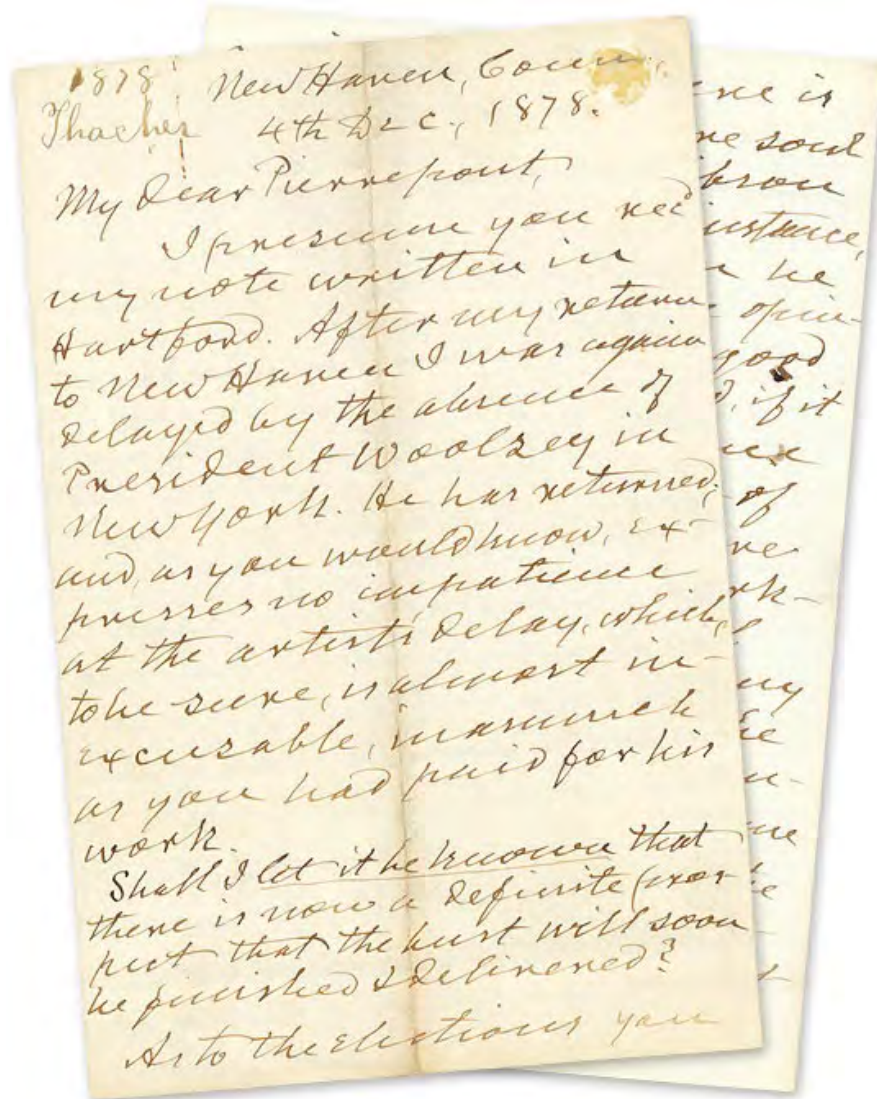 1878
Thacher
New Haven, Conn.,
4th Dec., 1878.
My dear Pierrepont,
I presume you recd
my note written in
Hartford. After my return
to New Haven I was again
delayed by the absence of
President Woolsey in
New York. He has returned;
and, as you would know, ex-
presses no impatience
at the artist's delay, which,
to be sure, is almost in-
excusable, inasmuch
as you had paid for his
work.
Shall I let it be known that
there is now a definite pros-
pect that the bust will soon
be finished & delivered?
As to the elections you
is
soul
instance,
he
opin-
good
if it
of